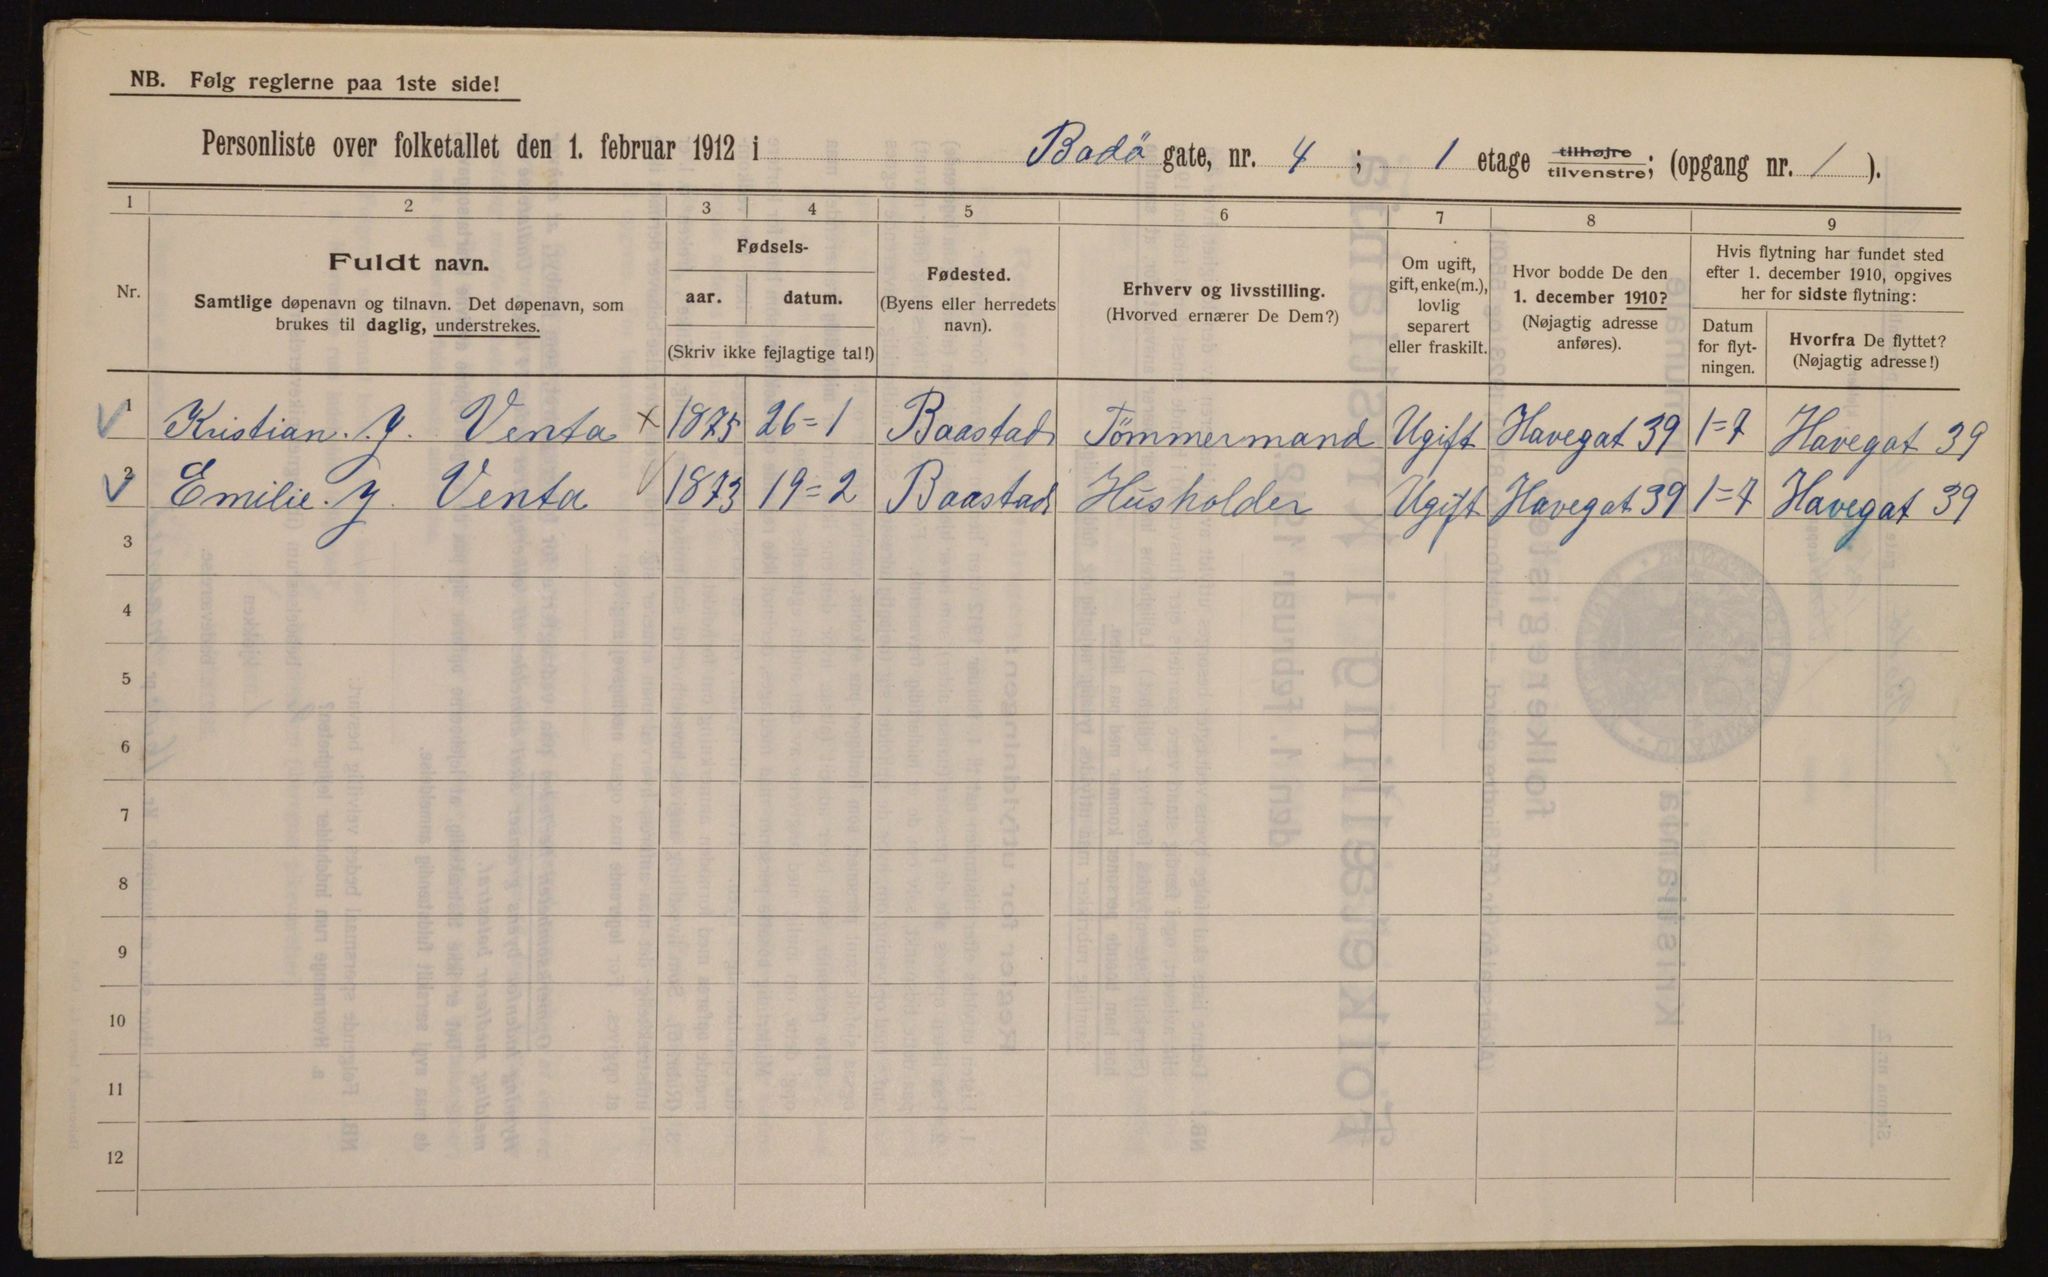 NB. Følg reglerne paa 1ste side!
Personliste over folketallet den 1. februar 1912 i Bodö gate, nr. 4 ; 1 etage tilhøjre tilvenstre; (opgang nr. 1 ).
1 2 3 4 5 6 7 8 9
Nr.
Fuldt navn.
Samtlige døpenavn og tilnavn. Det døpenavn, som
brukes til daglig, understrekes.
Fødsels-
aar. datum.
(Skriv ikke fejlagtige tal!)
Fødested.
(Byens eller herredets
navn).
Erhverv og livsstilling.
(Hvorved ernærer De Dem?)
Om ugift,
gift, enke(m.),
lovlig
separert
eller fraskilt.
Hvor bodde De den
1. december 1910?
(Nøjagtig adresse
anføres).
Hvis flytning har fundet sted
efter 1. december 1910, opgives
her for sidste flytning:
Datum
for flyt-
ningen.
Hvorfra De flyttet?
(Nøjagtig adresse!)
1 Kristian. J. Venta × 1875 26=1 Baastad Tömmermand Ugift Havegat 39 1=7 Havegat 39
2 Emilie. J. Venta 1873 19=2 Baastad Husholder Ugift Havegat 39 1=7 Havegat 39
3
4
5
6
7
8
9
10
11
12